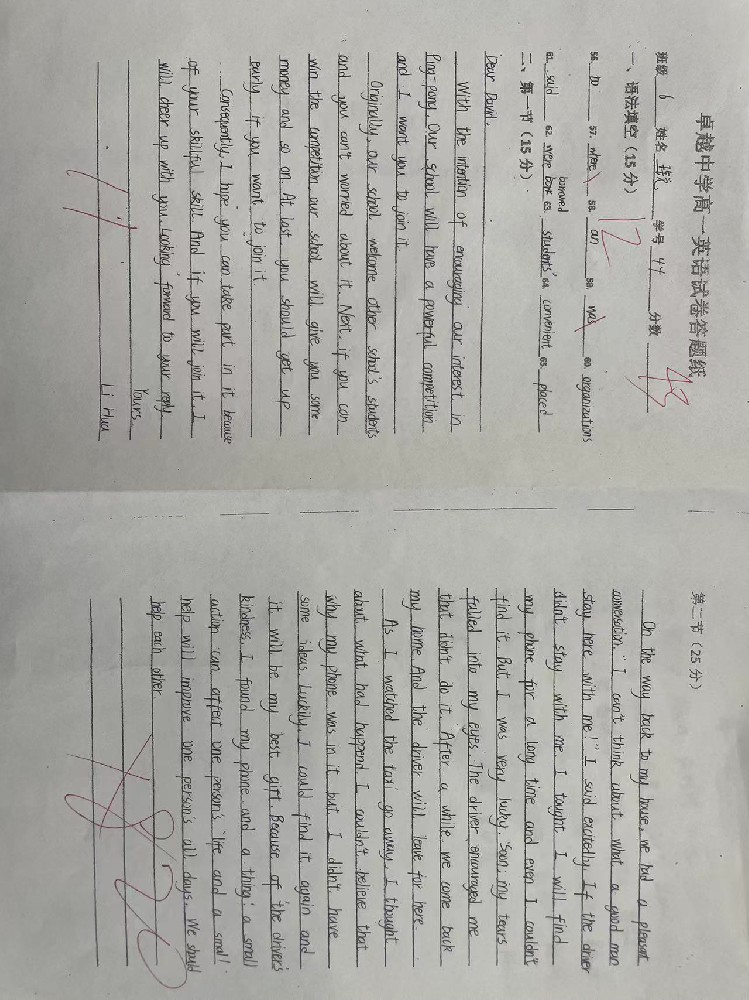 卓越中学高一英语试卷答题纸
班级 6 姓名 学号 44 分数 43
一、语法填空（15 分） 12
56. to 57. where 58. an 59. was 60. organizations
61. said 62. were born 63. students' 64. convenient 65. placed
二、第一节（15 分）
Dear David,
With the intention of encouraging our interest in
Ping-pong. Our school will have a powerful competition
and I want you to join it.
Originally, our school welcome other school's students
and you can't worried about it. Next, if you can
win the competition our school will give you some
money and so on. At last you should get up
early if you want to join it
Consequently, I hope you can take part in it because
of your skillful skill. And if you will join it. I
will cheer up with you. Looking forward to your reply
Yours
Li Hua
11
第二节（25 分）
On the way back to my house, we had a pleasant
conversation. "I can't think about what a good man
stay here with me!" I said excitedly. If the driver
didn't stay with me. I tought I will find
my phone for a long time and even I couldn't
find it. But I was very lucky. Soon, my tears
falled into my eyes. The driver encouraged me
that didn't do it. After a while, we come back
my home And the driver will leave for here.
As I watched the taxi go away, I thought
about what had happend. I couldn't believe that
why my phone was in it but I didn't have
some ideas. Luckily, I could find it again and
it will be my best gift. Because of the driver's
kindness. I found my phone and a thing: a small
action can affect one person's life and a small
help will improve one person's all days. We should
help each other.
20